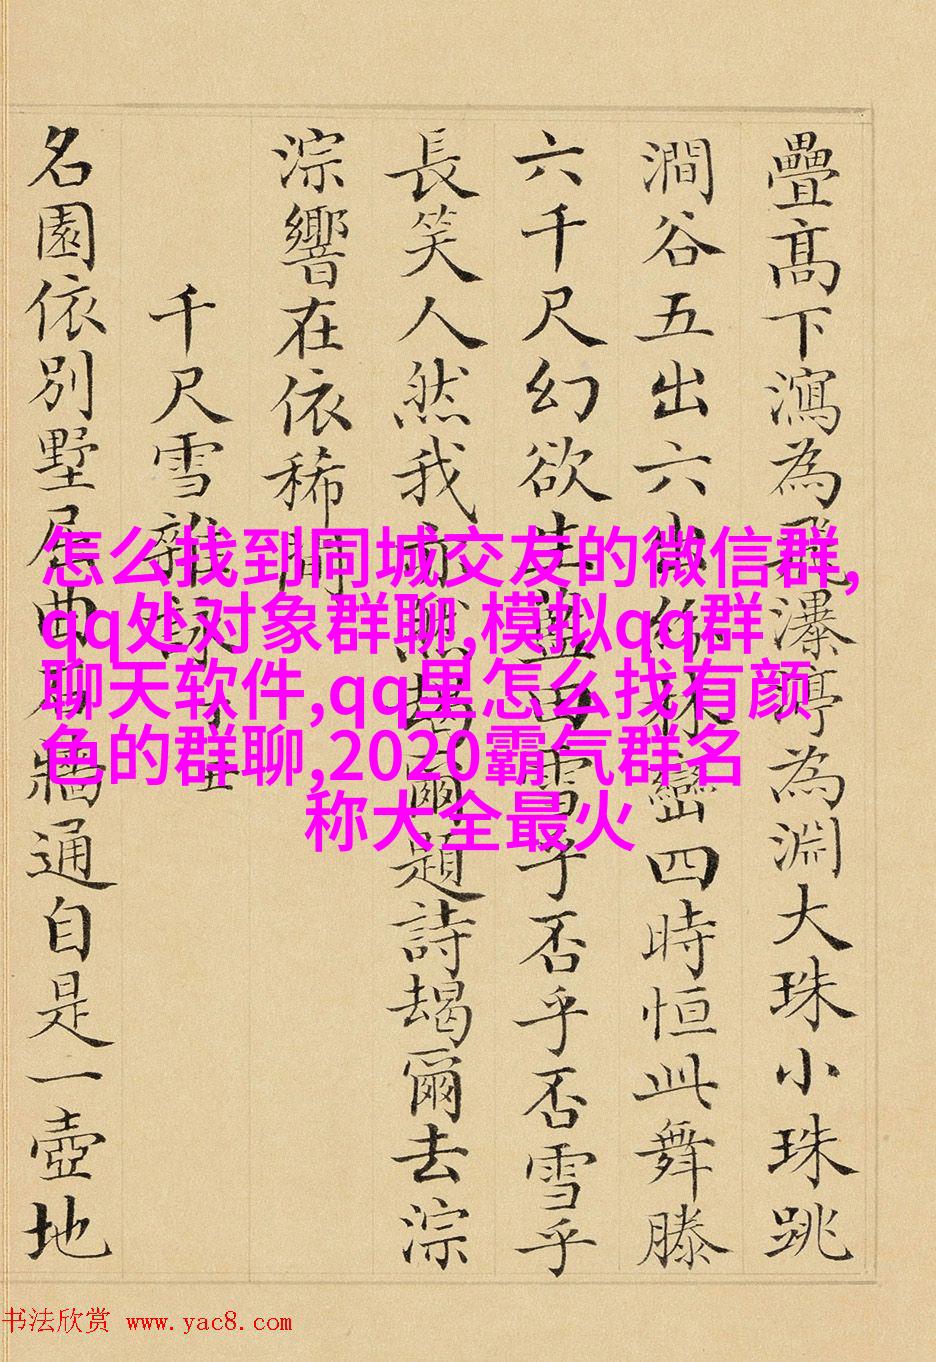 疊高下瀉為飛瀑亭為淵大珠小珠跳
澗谷五出六出紛林巒四時恒此舞滕
六千尺幻欲生藍田雪乎否乎否雪乎
長笑人然我亦既朅爾題詩朅爾去淙
淙響在依稀聞
千尺雪雜詠
名園依別墅屈曲石牆通自是一壺地
怎么找到同城交友的微信群,
qq处对象群聊,模拟qq群
聊天软件,qq里怎么找有颜
色的群聊,2020霸气群名
称大全最火
书法欣赏 www.yac8.com